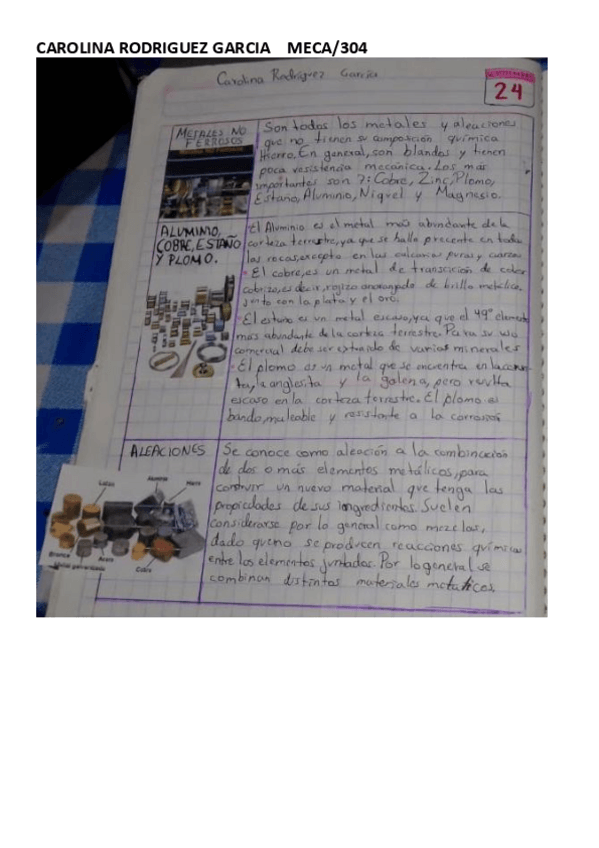 CAROLINA RODRIGUEZ GARCIA MECA/304
Carolina Rodriguez Garcia
24
METALES NO
FERROSOS
Son todos los metales y aleaciones
que no tienen su composición química
Hierro. En general, son blandos y tienen
poca resistencia mecánica. Los más
importantes son 7: Cobre, Zinc, Plomo,
Estaño, Aluminio, Niquel y Magnesio.
ALUMINIO,
COBRE, ESTAÑO
Y PLOMO.
El Aluminio es el metal más abundante de la
corteza terrestre, ya que se halla presente en todas
las rocas, excepto en las calcarias puras y cuarzos
El cobre, es un metal de transición de color
cobrizo, es decir, rojizo anaranjado de brillo metálico,
junto con la plata y el oro.
El estaño es un metal escaso, ya que el 49° elemento
más abundante de la corteza terrestre. Para su uso
comercial debe ser extraido de varias minerales
El plomo es un metal que se encuentra en la
la anglesita y la galena, pero resulta
escaso en la corteza terrestre. El plomo es
bando, maleable y resistente a la corrosión
ALEACIONES
Se conoce como aleación a la combinación
de dos o más elementos metálicos, para
construir un nuevo material que tenga las
propiedades de sus ingredientes. Suelen
considerarse por lo general como mezclas,
dado que no se producen reacciones químicas
entre los elementos juntados. Por lo general se
combinan distintos materiales metálicos.
Latón
Aluminio
Hierro
Bronce
Acero
Metal galvanizado
Cobre